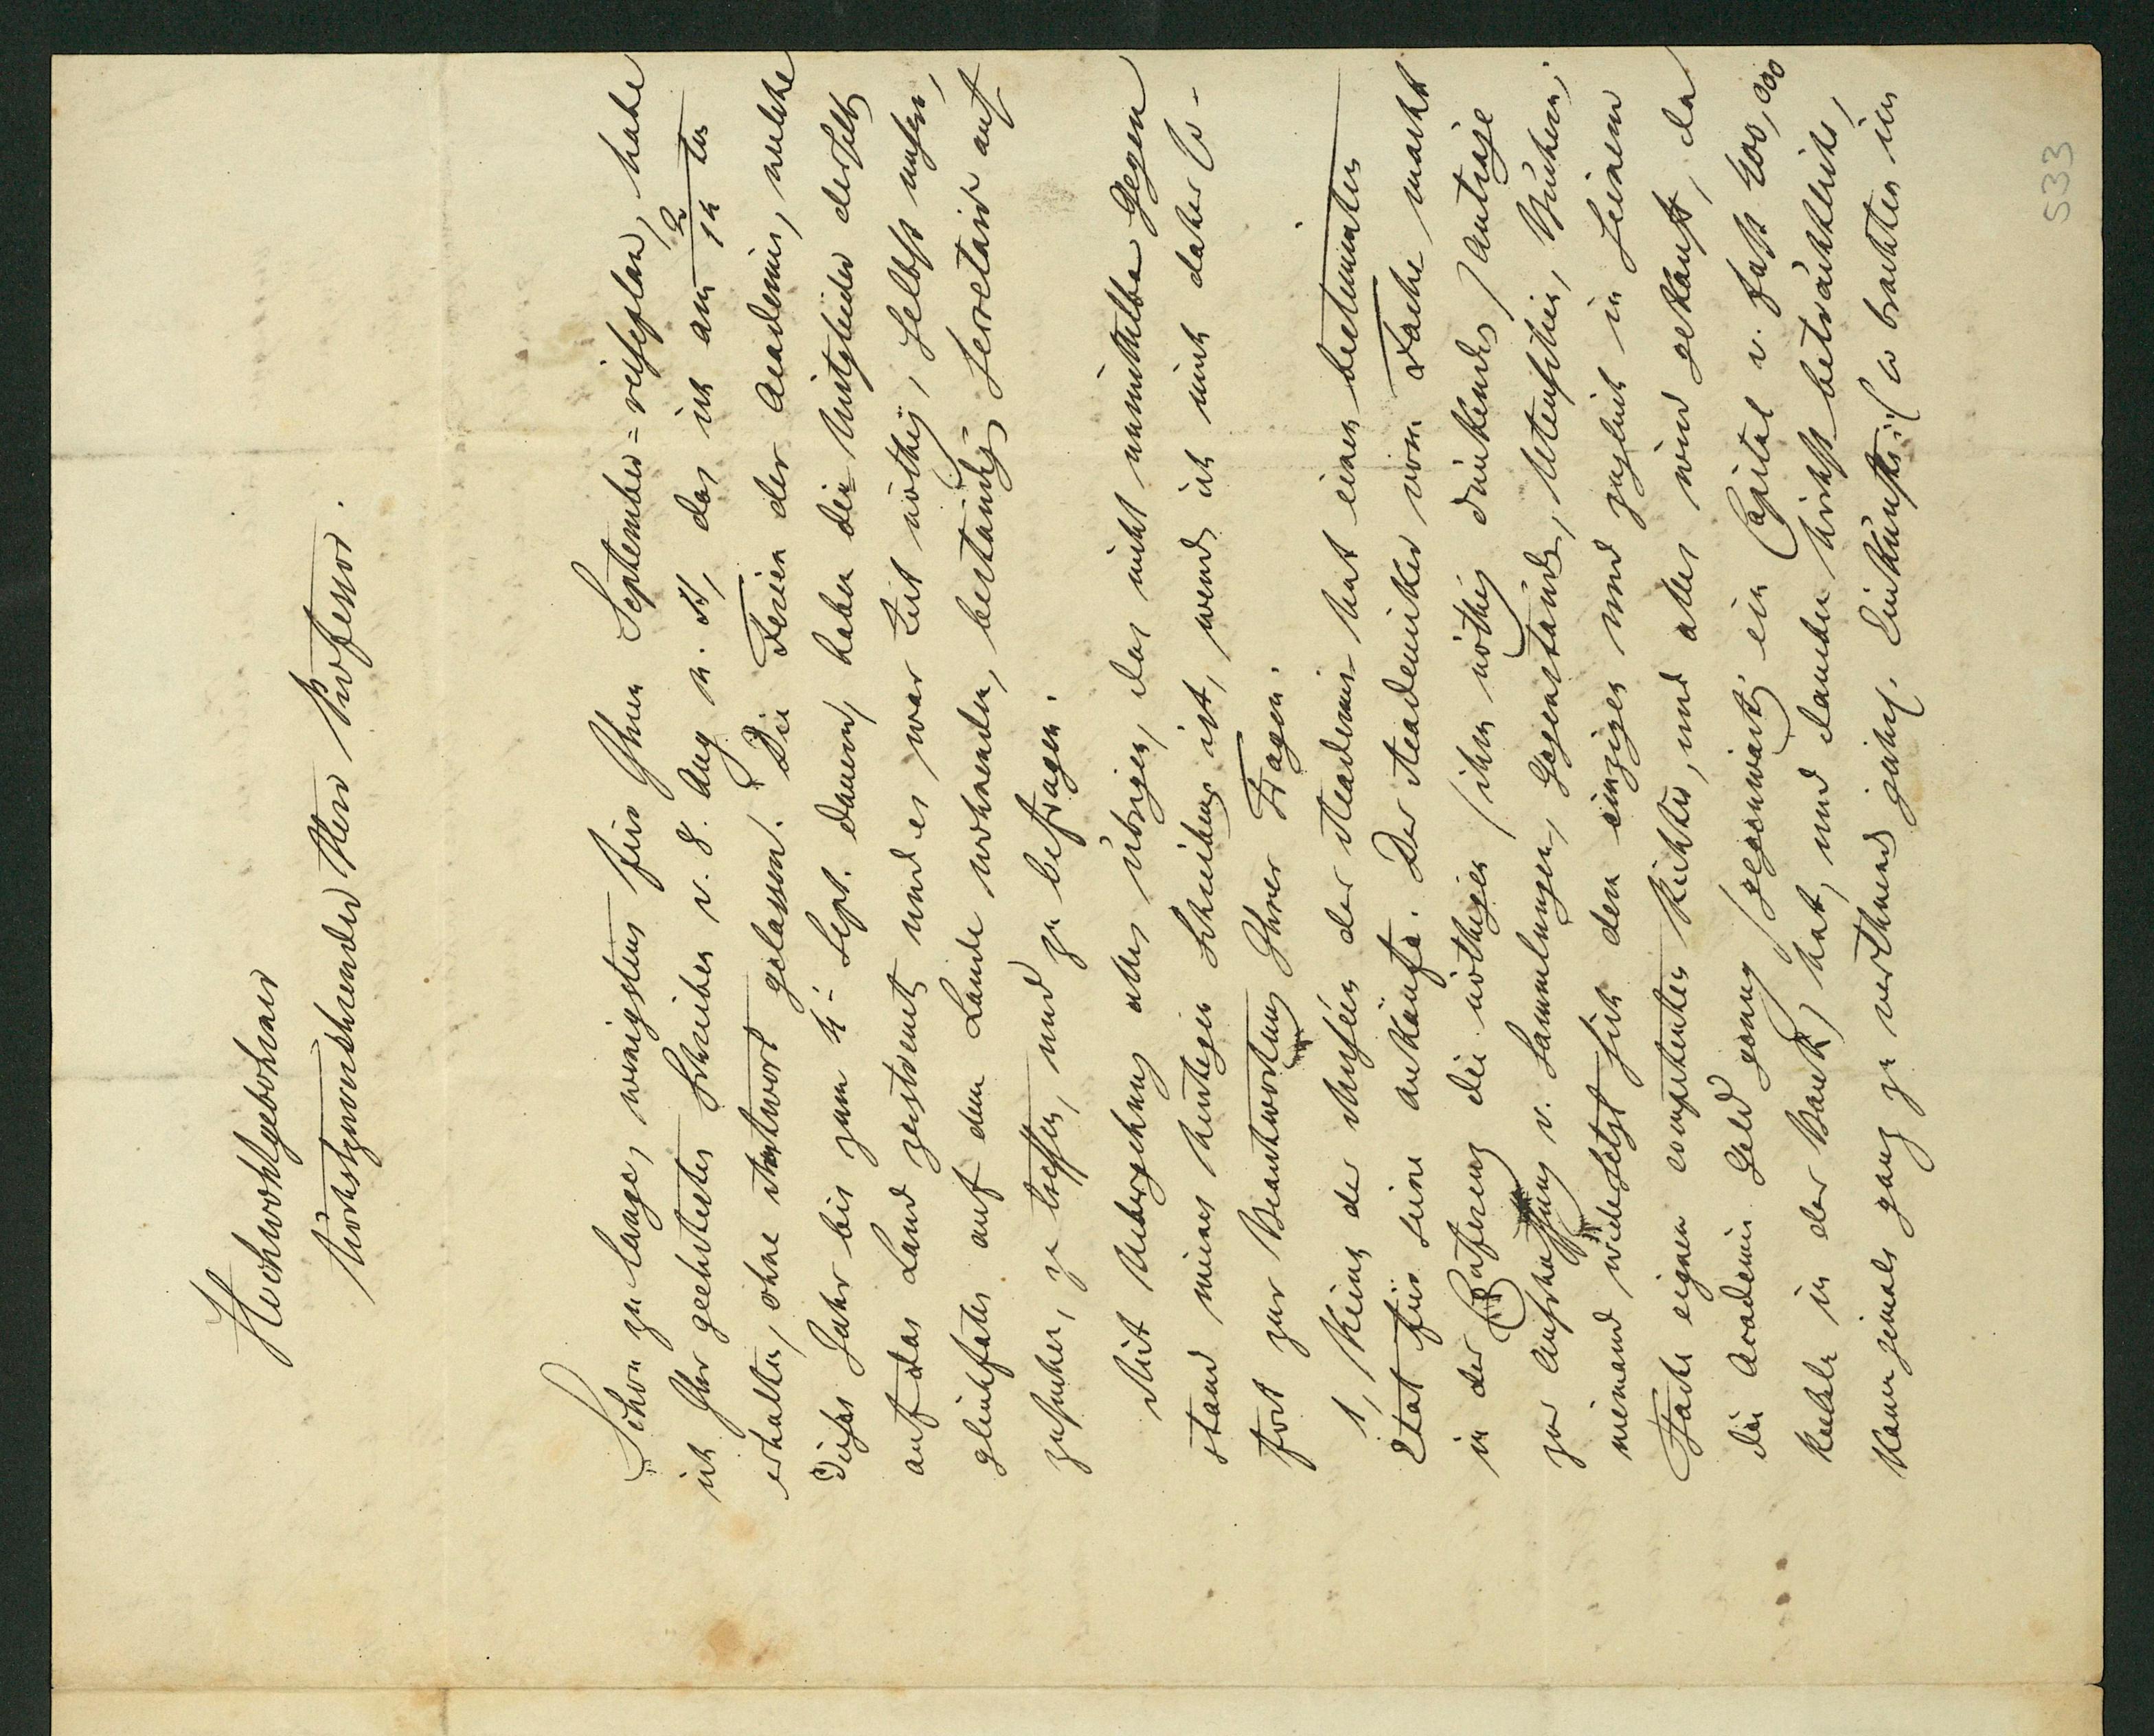 Hochwohlgebohrner
Höchstzuverehrender Herr Professor.
Schon zu lange, wenigstens für Ihren September=reiseplan, habe
ich Ihr geehrtestes Schreiben v. 8. Aug n. St, das ich am 2/14 ten
erhalten, ohne Antwort gelassen. Die Ferien der Academie, welche
dieses Jahr bis zum 4 Sept. dauern, haben die Mitglieder derselb
auf das Land zerstreuet und es war Zeit nöthig, selbst unsern,
gleichfalls auf dem Lande wohnenden, beständig Secretair auf
zusuchen, zu treffen, und zu befragen.
Mit Uebergehung alles übrigen, das nicht unmittelba Gegen
stand meines heutigen Schreibens ist, wende ich mich daher so-
fort zur Beantwortung Ihrer Fragen.
1, Keines der Muséen der Academie hat einen bestimmten
Etat für seine ankäufe. Der Academiker vom Fache macht
in der Conferenz die nöthigen (ihm nöthig dünkende) Anträge
zur Anschaffung v. Sammlungen, Gegenstände, Utensilien, Büchern;
niemand widersetzt sich dem einzigen und zugleich in seinem
Fache eignen competenten Richter, und alles wird gekauft, da
die Academie Geld genug (gegenwärtig ein Capital v. fast 400,000
Rubeln in der Bank) hat, und dieselben höchst beträchtlich,
kaum jemals ganz zu verthuend jährl. Einkünfte. So brachten im
533